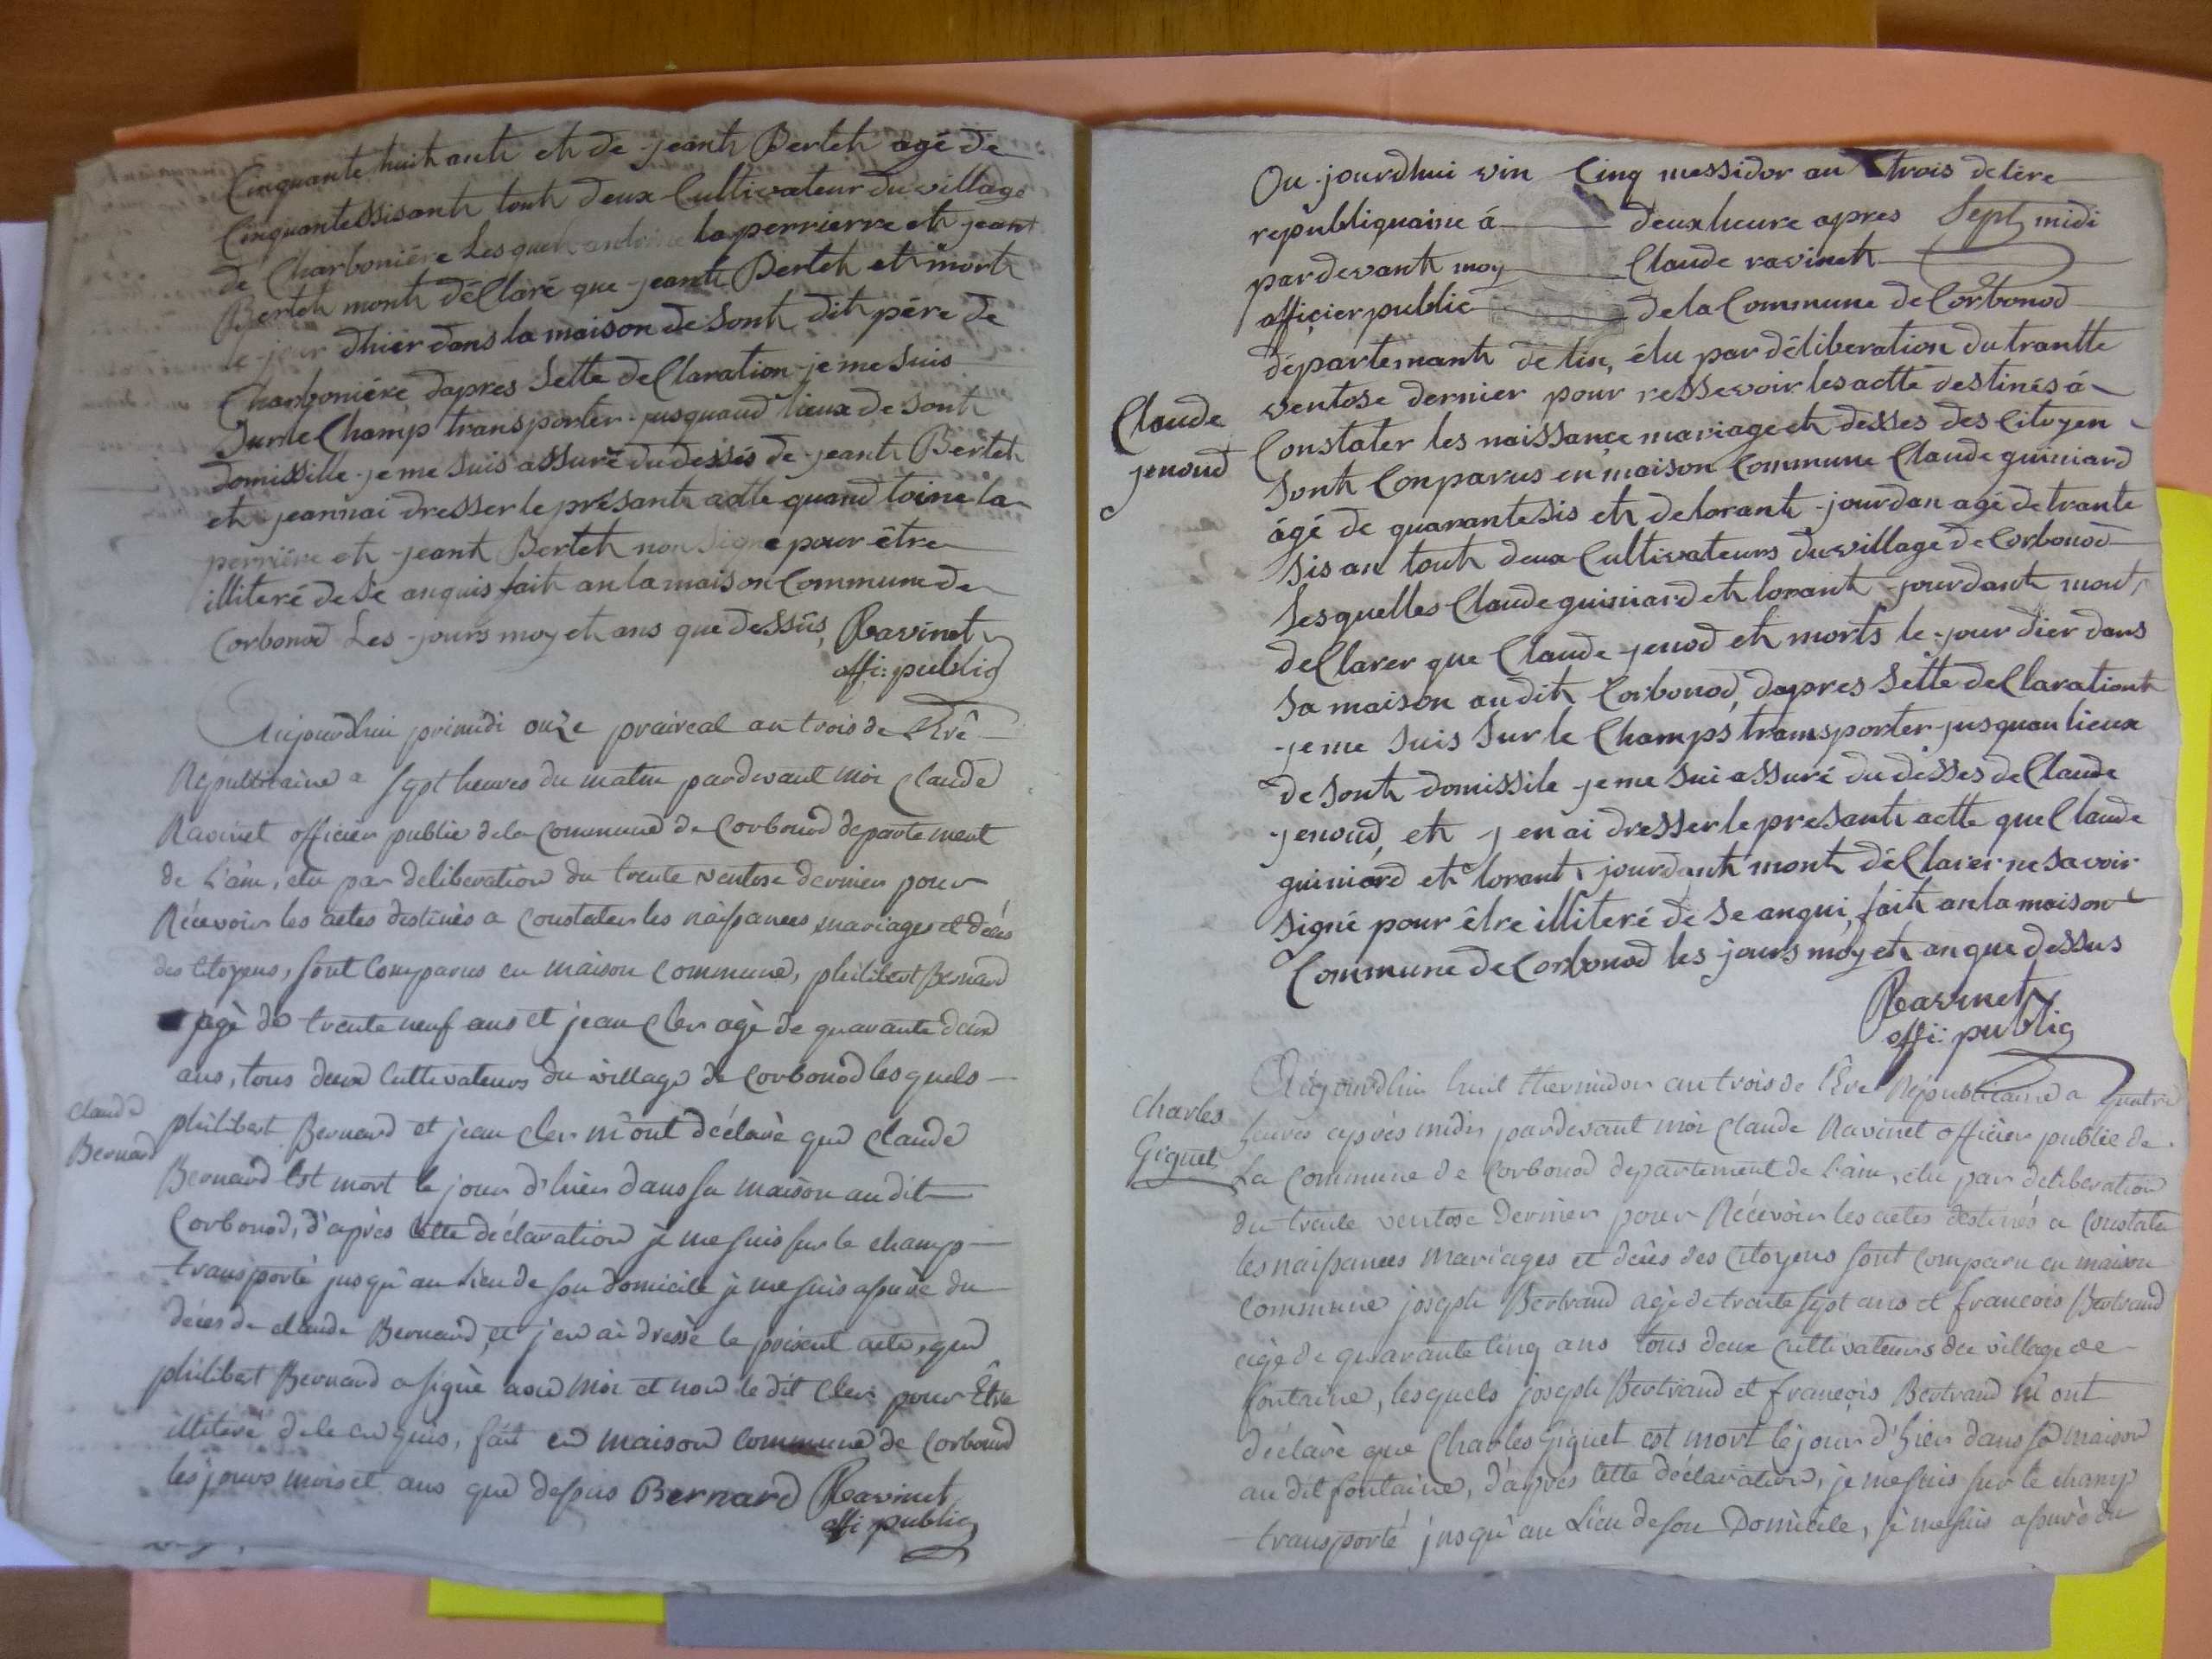 Cinquante huit anth eth de jeanth Berteh agé de
Cinquantessisanth touh deux Cultivateur du village
de Charboniére Lesqueh antoine laperrierre eth jeant
Berteh month déClaré que jeanth Berteh eth morth
le jour dhier dans la maison de sonth dith pére de
Charboniére dapres Sette deClaration je me suis
Surle Champ transporter jusquaud lieux de sonth
domissille je me suis assuré du dessés de jeanth Berteh
eth jeannai dresser le présanth actte quand toine la
perriére eth jeant Berteh non signé pour être
illiteré de se anquis faith an la maison Commune de
Corbonod Les jours moy eth ans que dessus, Ravinet
offi: public
Aujourdhui primidi onze praireal an trois de L'Erê
Républicaine a sept heures du matin pardevant moi Claude
Ravinet officier public de la Commune de Corbonod departement
de L'ain, elu par deliberation du trente ventose dernier pour
Récevoir les actes destinés a Constater les naissances, mariages et décés
des Citoyens, sont Comparus en maison Commune, philibert Bernard
agè de trente neuf ans et jean Cler agè de quarante deux
ans, tous deux Cultivateurs du village de Corbonod lesquels
Claude
Bernard
philibert Bernard et jean Cler m'ont déclaré que Claude
Bernard Est mort le jour d'hier dans sa maison au dit
Corbonod, d'après Cette déclaration je me suis sur le champ
transporté jusqu'au Lieu de son domicile je me suis assuré du
décés de claude Bernard, et j'en ai dressé le présent acte, que
philibert Bernard a signè avec moi et non le dit Cler pour Etre
illiteré de le enquis, fait en maison Commune de Corbonod
les jours mois et ans que dessus Bernard Ravinet
offi public
Ou jourdhui vin Cinq messidor an trois de lére
republiquaine á deux heure apres Sept midi
pardevanth moy Claude ravineth
officier public de la Commune de Corbonod
départemanth de lin, élu par déliberation du trantte
ventose dernier pour ressevoir les actte destinés á
Claude
jenoud
Constater les naissançe mariage eth desses des Citoyen
Sonth Conparus en maison Commune Claude guiniard
ágé de quarante sis eth de lorant jourdan agé de trante
sis an touth deux Cultivateurs du village de Corbonod
Lesquelles Claude guiniard eth lorant jourdanth mont
deClarer que Claude jenod eth morts le jour dier dans
sa maison audith Corbonod, dapres Sette deClarationth
je me suis sur le Champs transporter jusquau lieux
de sonth domissile je me sui assuré du desses de Claude
jenoud, eth jenai dresser le presanth actte que Claude
guiniard eth lorant jourdanth month déClarer ne savoir
Signé pour être illiteré de se anqui, faith an la maison
Commune de Corbonod les jours moy eth an que dessus
Ravinet
offi: public
Charles
Giguet
Aujourdhui huit thermidor an trois de L'Ere Républicaine a quatre
heures après midi, pardevant moi Claude Ravinet officier public de
La Commune de Corbonod departement de L'ain, elu par deliberation
du trente ventose dernier pour Récévoir les actes destinés a Constater
les naissances mariages et décès des Citoyens sont Comparu en maison
Commune joseph Bertrand agè de trente sept ans et francois Bertrand
agè de quarante Cinq ans tous deux Cultivateurs du village de
fontaine, lesquels joseph Bertrand et francois Bertrand m'ont
déclaré que Charles Giguet est mort le jour d'hier dans sa maison
au dit fontaine, d'après Cette déclaration, je me suis sur le champ
transporté jusqu'au Lieu de son Domicile, je me suis assuré du